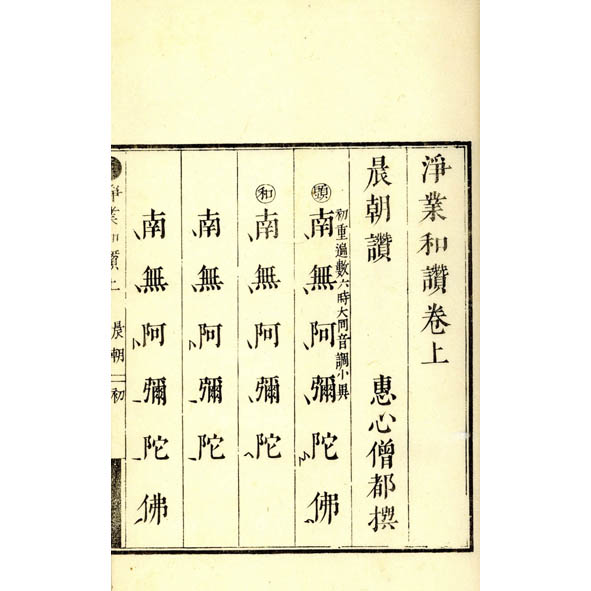 淨業和讚卷上
晨朝讚　惠心僧都撰
初重遍數六時大同音調小異
南無阿彌陀佛
和　南無阿彌陀
南無阿彌陀
南無阿彌陀佛
淨業和讚上　晨朝　初